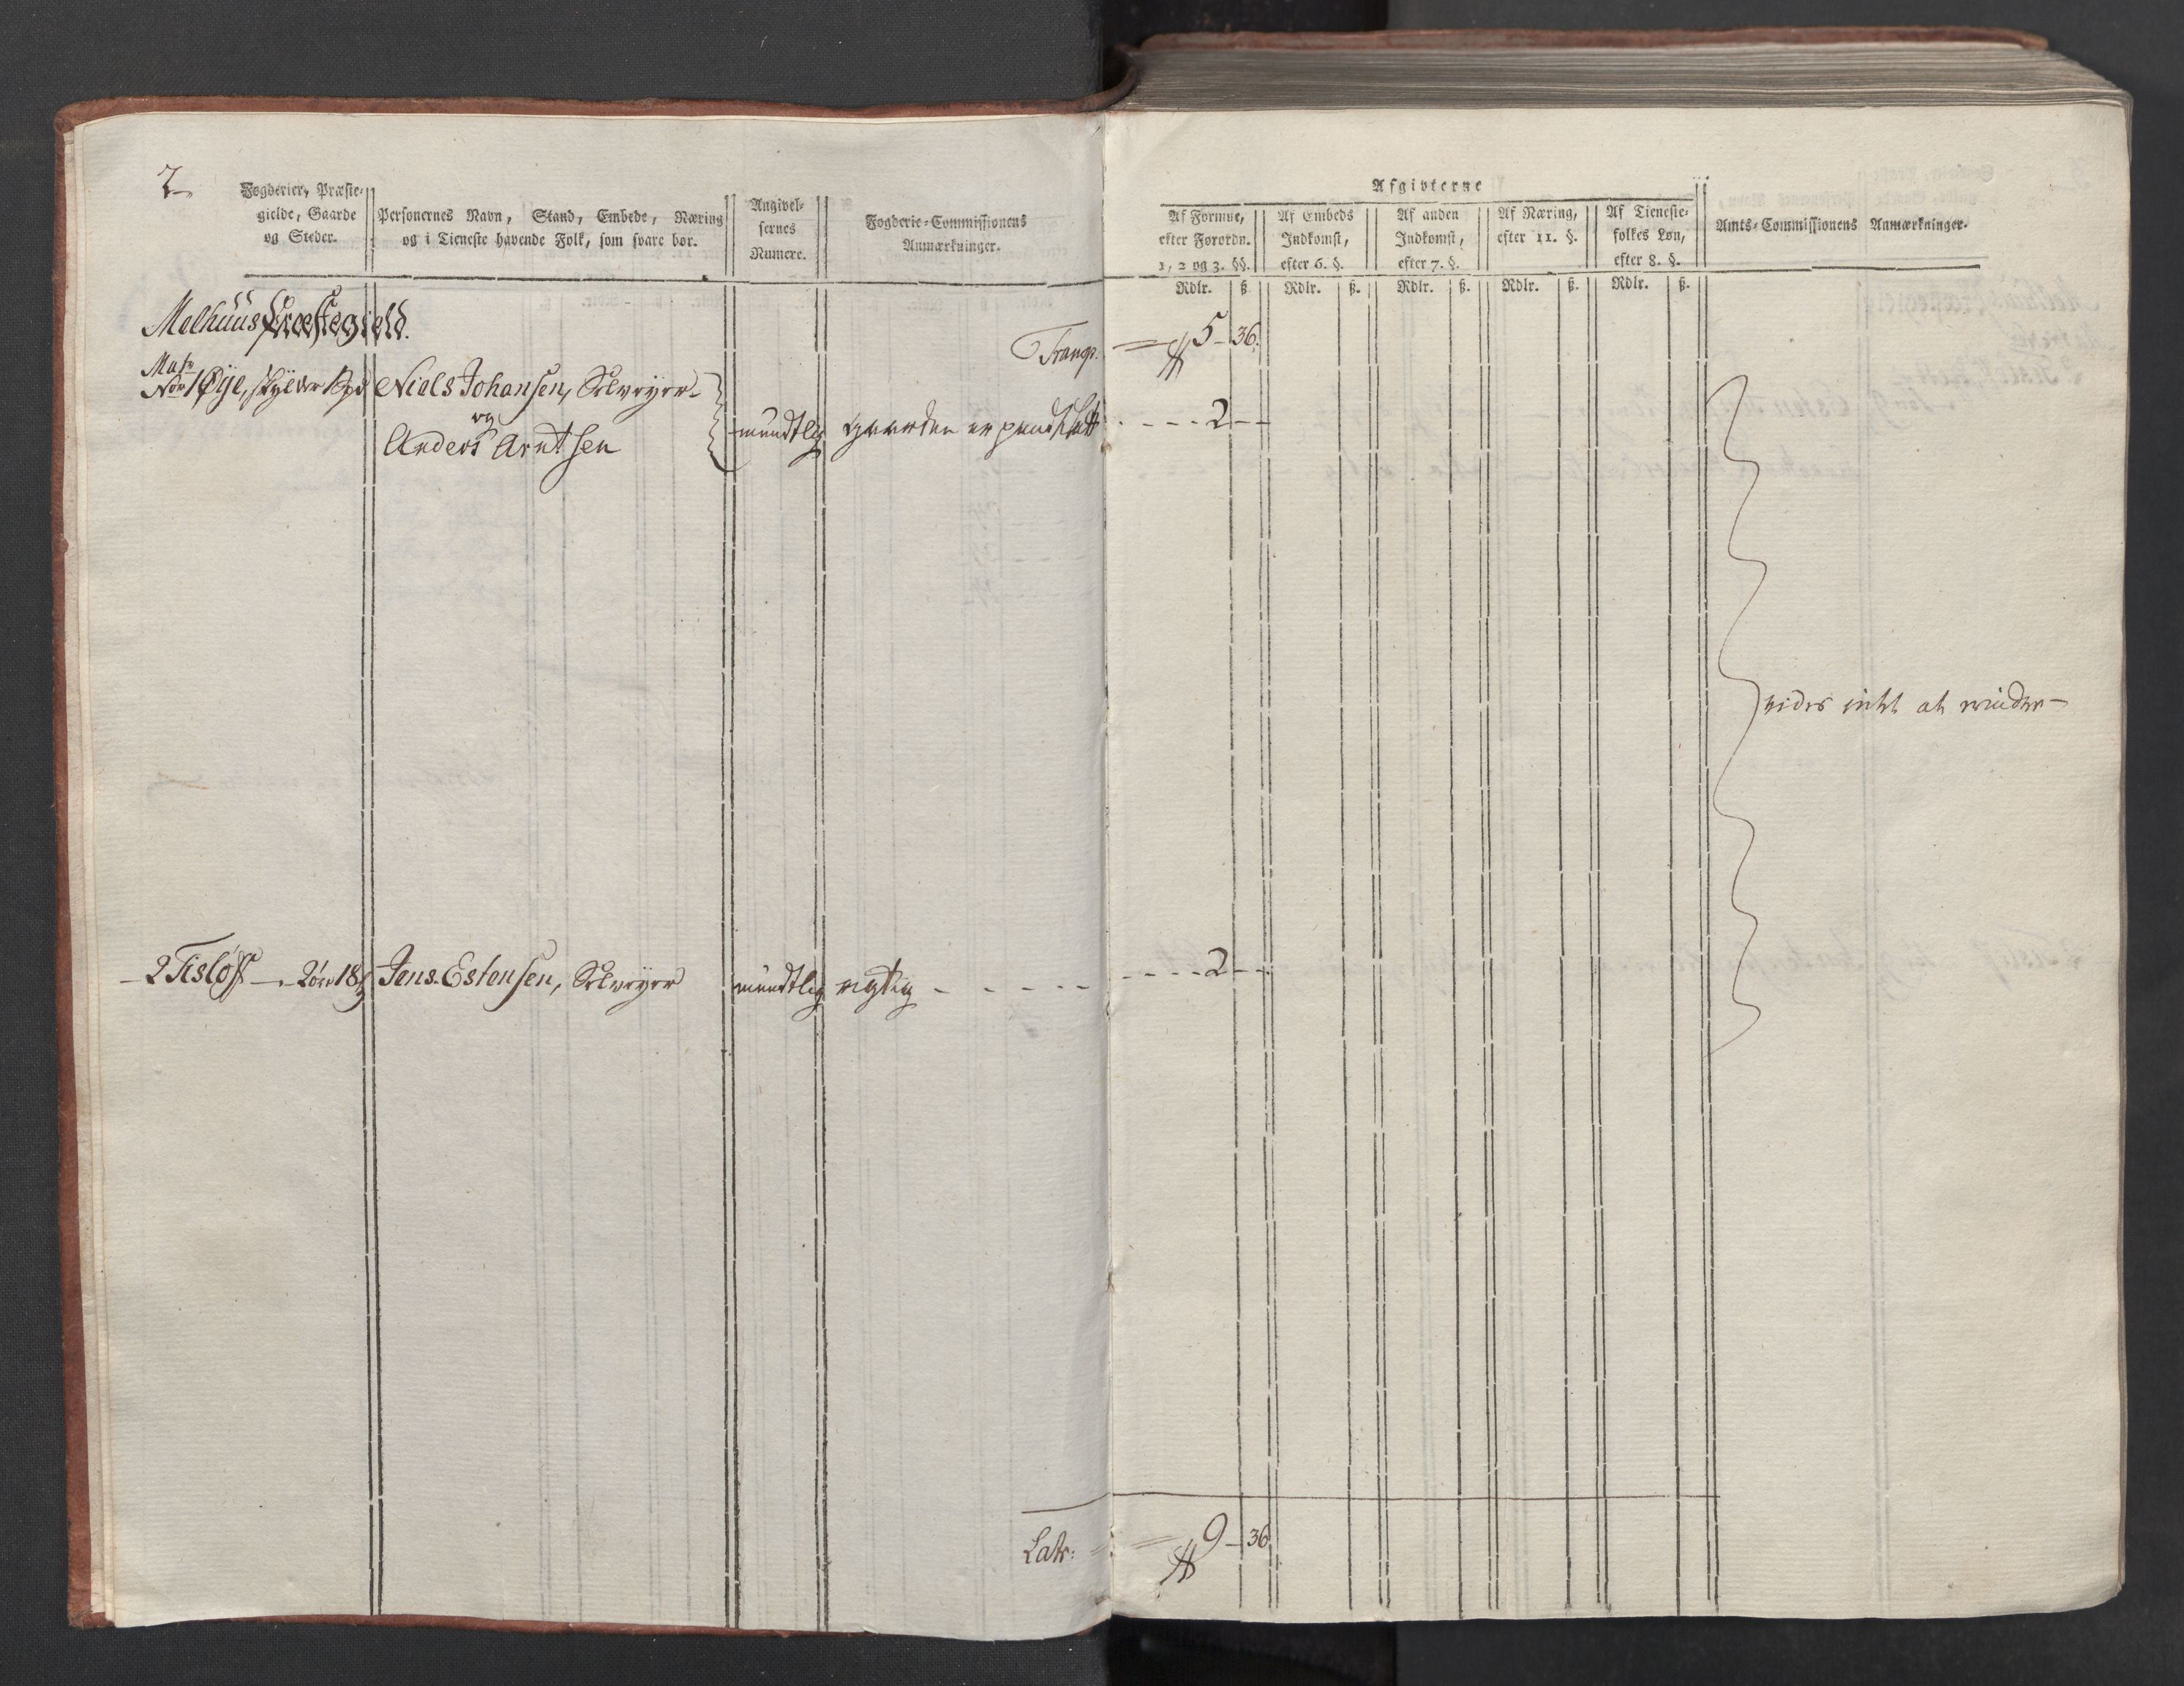 2
Fogderier, Præste-
gielde, Gaarde
og Steder.
Personernes Navn, Stand, Embede, Næring
og i Tieneste havende Folk, som svare bør.
Angivel-
sernes
Numere.
Fogderie-Commissionens
Anmærkninger.
Afgivterne
Af Formue,
efter Forordn.
1, 2 og 3. §§.
Af Embeds
Indkomst,
efter 6. §.
Af anden
Indkomst,
efter 7. §.
Af Næring,
efter 11. §.
Af Tieneste-
folkes Løn,
efter 8. §.
Amts-Commissionens Anmærkninger.
Rdlr. ß. Rdlr. ß. Rdlr. ß. Rdlr. ß. Rdlr. ß.
Melhuus Præstegield.
Transp. 5 - 36.
Mat:
No 1 Øye, skylder Niels Johansen, Selveyer
og
Anders Arntsen
mundtlig Gaarden er pandsatt - - - - 2 - -
vides intet at erindre -
- 2 Tisløff - 2 ør 18 Jens Estensen, Selveyer mundtlig rigtig - - - - - - - - 2 - -
Latr: 9 - 36